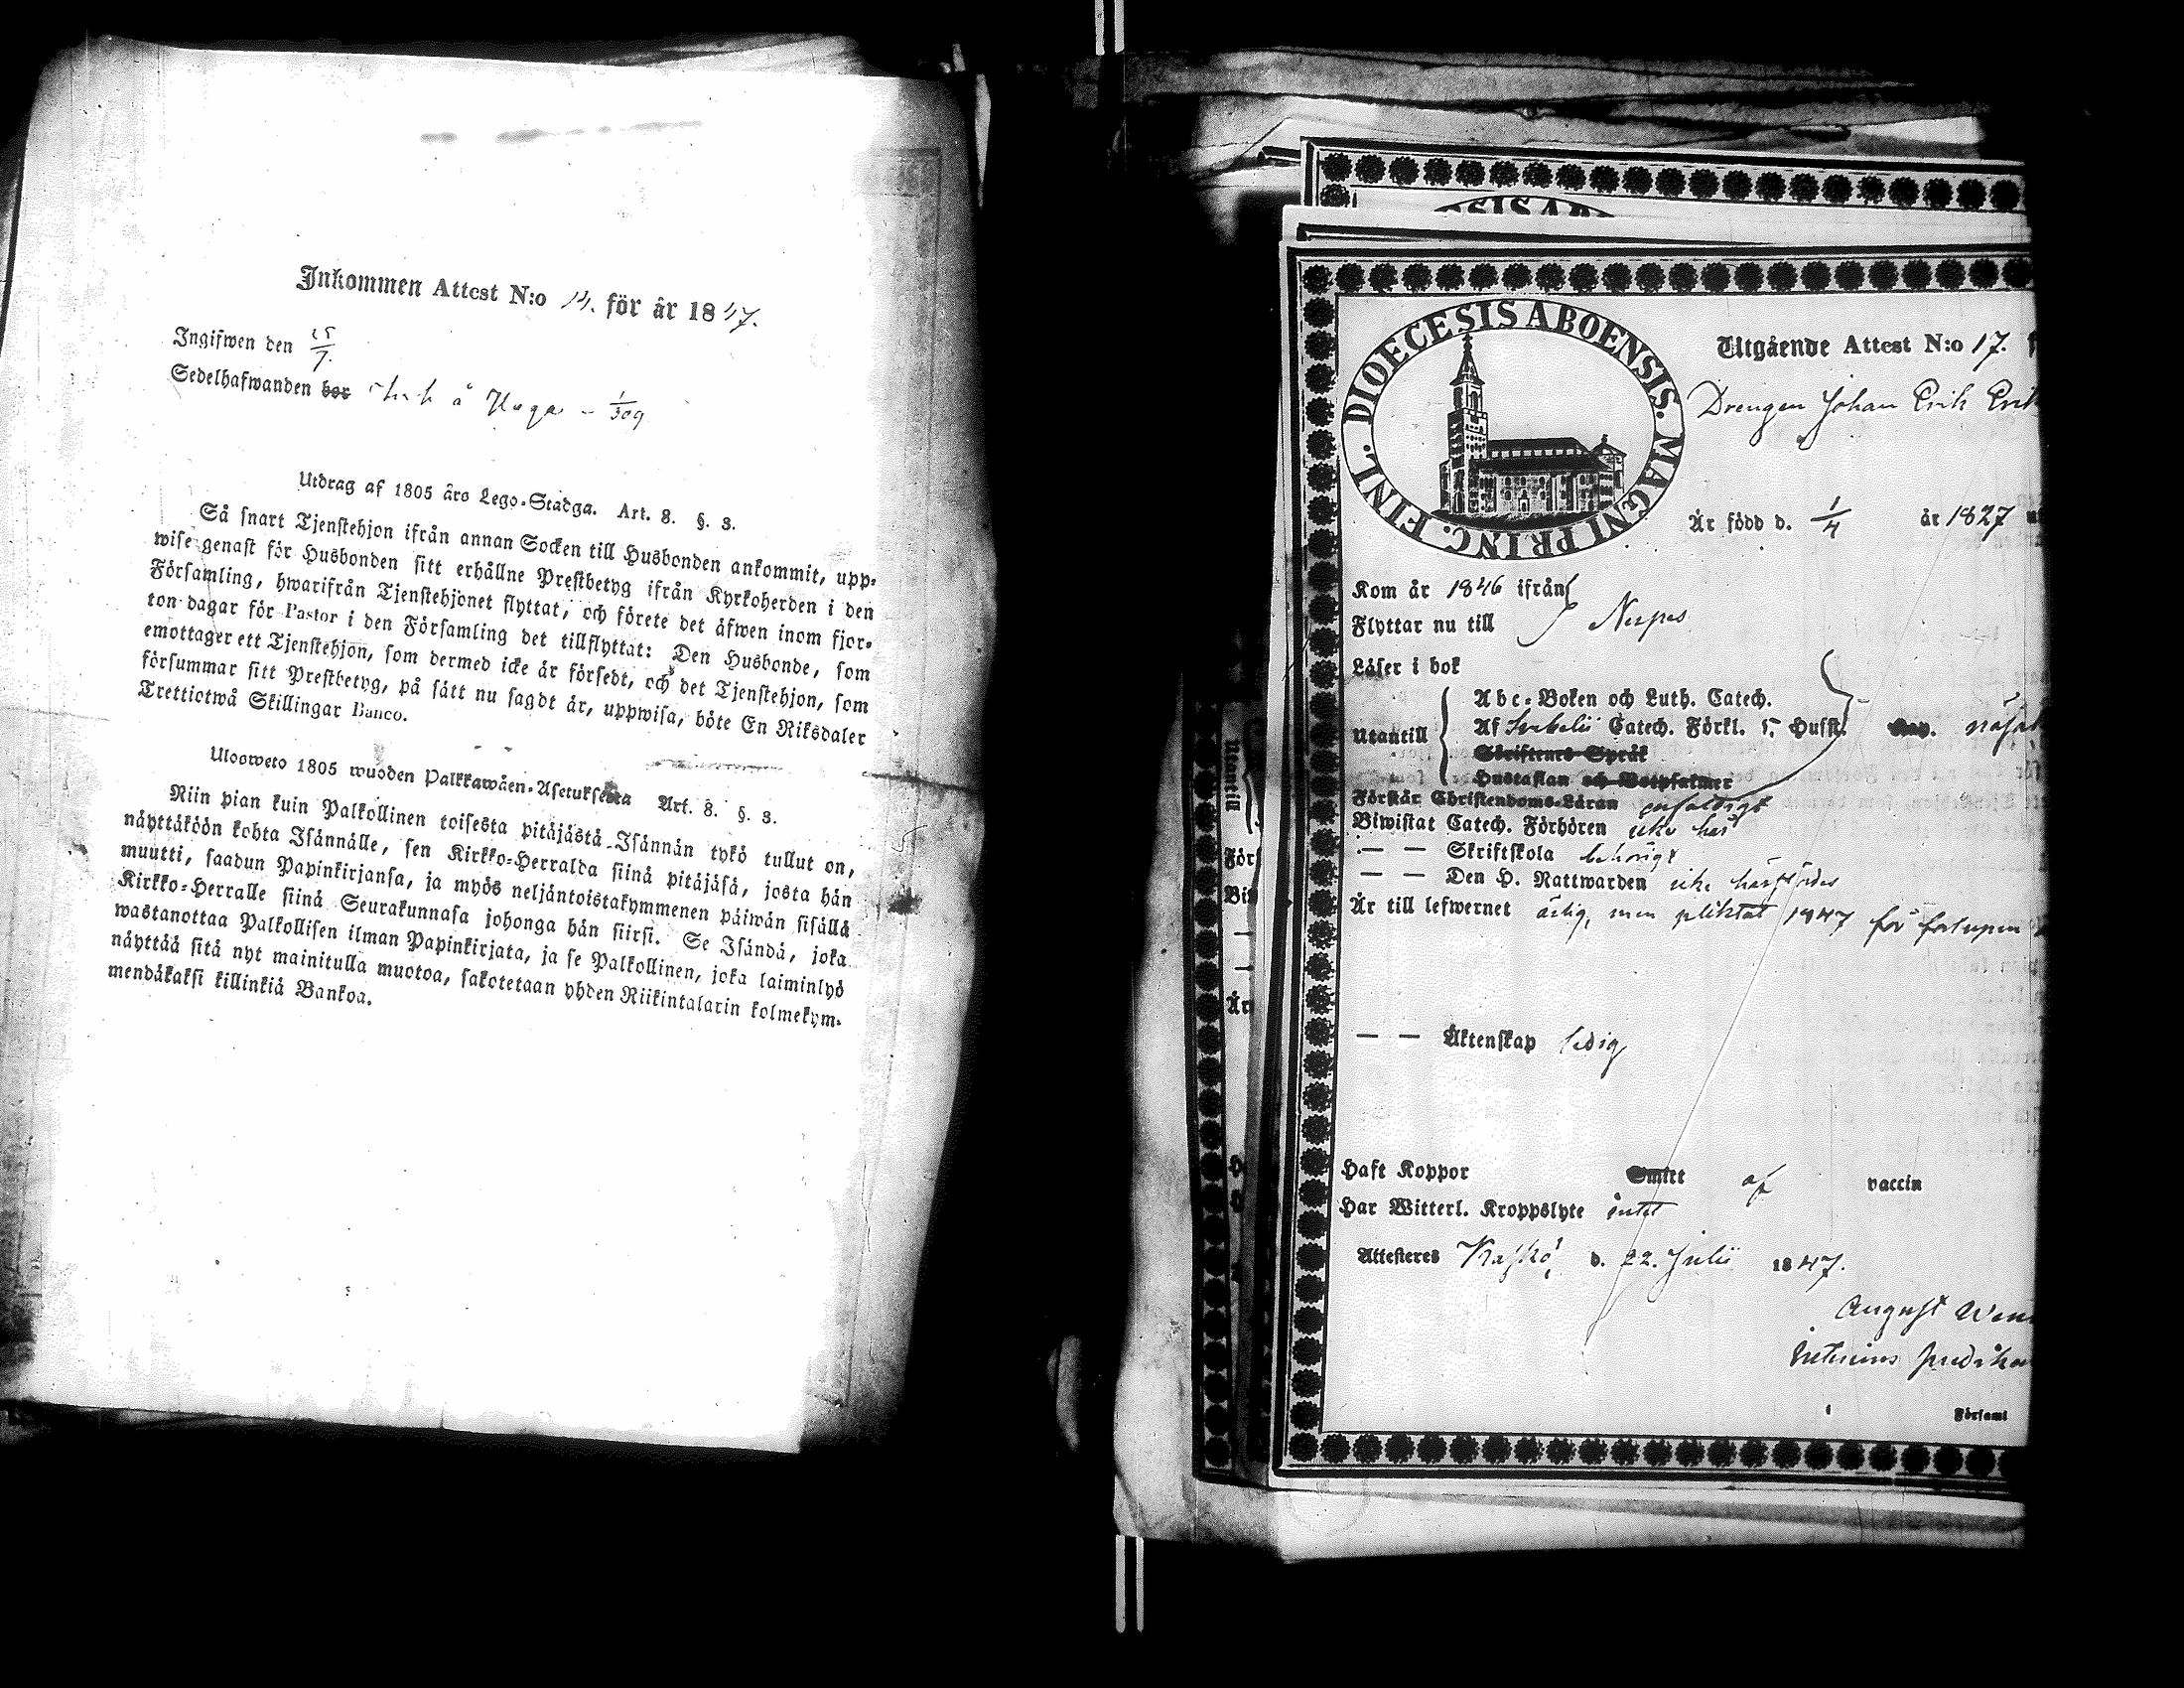 Inkommen Attest N:o 14. för år 1847.
Ingifwen den 25/7.
Sedelhafwanden bor å Haga - 1/309
Utdrag af 1805 års Lego-Stadga. Art. 8. §. 3.
Så snart Tjenstehjon ifrån annan Socken till Husbonden ankommit, upp-
wise genast för Husbonden sitt erhållne Prestbetyg ifrån Kyrkoherden i den
Församling, hwarifrån Tjenstehjonet flyttat, och förete det äfwen inom fjor-
ton dagar för Pastor i den Församling det tillflyttat: Den Husbonde, som
emottager ett Tjenstehjon, som dermed icke är försedt, och det Tjenstehjon, som
försummar sitt Prestbetyg, på sätt nu sagdt är, uppwisa, böte En Riksdaler
Trettiotwå Skillingar Banco.
Ulosweto 1805 wuoden Palkkawäen-Asetuksesta Art. 8. §. 3.
Niin pian kuin Palkollinen toisesta pitäjästä Isännän tykö tullut on,
näyttäköön kohta Isännälle, sen Kirkko-Herralda siinä pitäjäsä, josta hän
muutti, saadun Papinkirjansa, ja myös neljäntoistakymmenen päiwän sisällä
Kirkko-Herralle siinä Seurakunnasa johonga hän siirsi. Se Isändä, joka
wastanottaa Palkollisen ilman Papinkirjata, ja se Palkollinen, joka laiminlyö
näyttää sitä nyt mainitulla muotoa, sakotetaan yhden Riikintalarin kolmekym-
mendäkaksi killinkiä Bankoa.
DIOECESIS ABOENSIS. MAGNI PRINC. FINL.
Utgående Attest N:o 17.
Drengen Johan Erik Erik
Är född d. 1/4 år 1827
Kom år 1846 ifrån
Flyttar nu till Nerpes
Läser i bok
Abc-Boken och Luth. Catech.
Utantill Af Svebelii Catech. Förkl. Husst.
Skriftenes Språk
Hustaflan och Botpsalmer
Förstår Christendoms-Läran enfaldigt
Biwistat Catech. Förhören icke här
— — Skriftskola behörigt
— — Den H. Nattwarden icke här
Är till lefwernet ärlig, men pliktat 1847 för
— — Äktenskap ledig
Haft Koppor Smitt af vaccin
Har Witterl. Kroppslyte intet
Attesteres Kaskö, d. 22. Julii 1847.
August
i Församl
Utantill